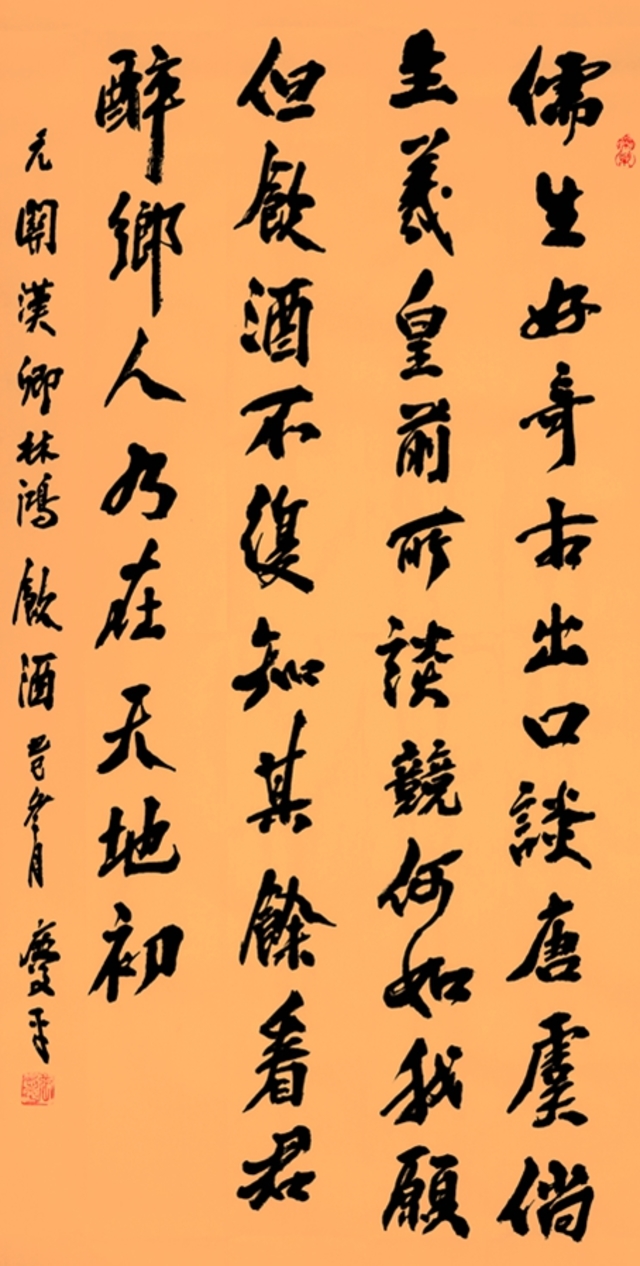 儒生好奇古出口談唐虞倘
生羲皇前所談競何如我願
但飲酒不復知其餘看君
醉鄉人乃在天地初
元關漢卿林鴻飲酒